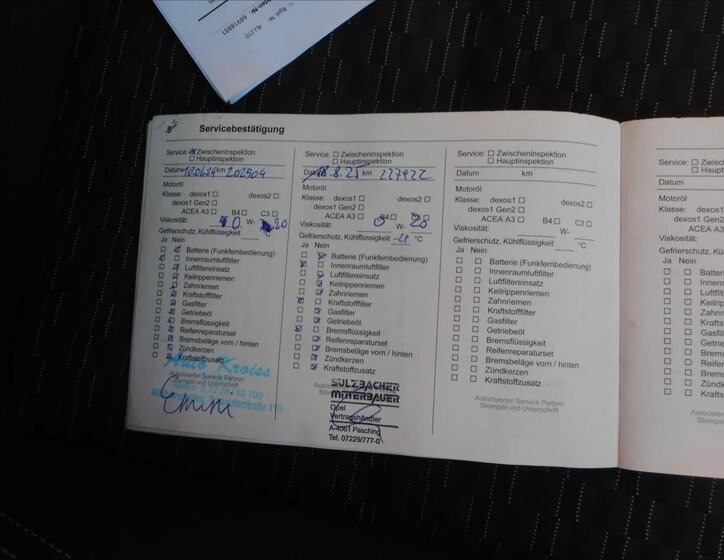 Nr. 68918851
Bgnr. Nr. 4LL210
8
Servicebestätigung
Service: Zwischeninspektion
Hauptinspektion
Datum km 202504
Motoröl
Klasse: dexos1 dexos2
dexos1 Gen2
ACEA A3 B4 C3
Viskosität: 0 W- 20
Gefrierschutz, Kühlflüssigkeit °C
Ja Nein
Batterie (Funkfernbedienung)
Innenraumluftfilter
Luftfiltereinsatz
Keilrippenriemen
Zahnriemen
Kraftstofffilter
Gasfilter
Getriebeöl
Bremsflüssigkeit
Reifenreparaturset
Bremsbeläge vorn / hinten
Zündkerzen
Kraftstoffzusatz
Auto Kroiss
Autorisierter Service Partner
Stempel und Unterschrift
Service: Zwischeninspektion
Hauptinspektion
Datum 18.8.25 km 227922
Motoröl
Klasse: dexos1 dexos2
dexos1 Gen2
ACEA A3 B4 C3
Viskosität: 0 W- 20
Gefrierschutz, Kühlflüssigkeit -28 °C
Ja Nein
Batterie (Funkfernbedienung)
Innenraumluftfilter
Luftfiltereinsatz
Keilrippenriemen
Zahnriemen
Kraftstofffilter
Gasfilter
Getriebeöl
Bremsflüssigkeit
Reifenreparaturset
Bremsbeläge vorn / hinten
Zündkerzen
Kraftstoffzusatz
SULZBACHER
MITTERBAUER
Opel
Vertragshändler
A-4061 Pasching
Tel. 07229/777-0
Service: Zwischeninspektion
Hauptinspektion
Datum km
Motoröl
Klasse: dexos1 dexos2
dexos1 Gen2
ACEA A3 B4 C3
Viskosität: W-
Gefrierschutz, Kühlflüssigkeit °C
Ja Nein
Batterie (Funkfernbedienung)
Innenraumluftfilter
Luftfiltereinsatz
Keilrippenriemen
Zahnriemen
Kraftstofffilter
Gasfilter
Getriebeöl
Bremsflüssigkeit
Reifenreparaturset
Bremsbeläge vorn / hinten
Zündkerzen
Kraftstoffzusatz
Autorisierter Service Partner
Stempel und Unterschrift
Service: Zwischeninspektion
Hauptinspektion
Datum
Motoröl
Klasse: dexos1
dexos1 Gen2
ACEA A3
Viskosität:
Gefrierschutz, Kühl
Ja Nein
Batterie
Innenra
Luftfilte
Keilripp
Zahnrie
Kraftsto
Gasfilte
Getrieb
Bremsf
Reifenr
Bremsb
Zündke
Kraftsto
Autorisier
Stempe